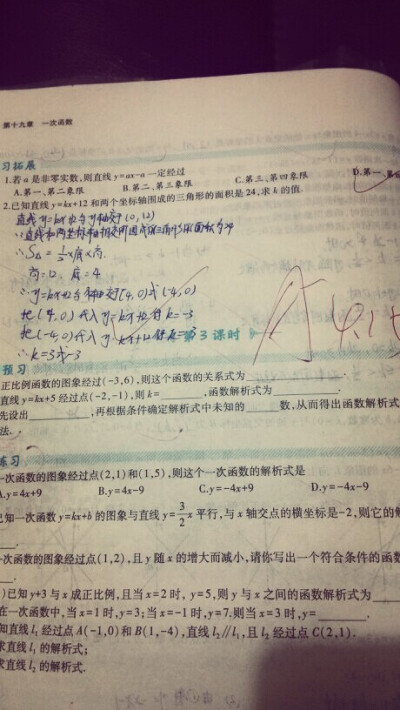 第十九章 一次函数
习拓展
1.若a是非零实数,则直线y=ax-a一定经过
A.第一、第二象限 B.第二、第三象限 C.第三、第四象限 D.第一、第
2.已知直线y=kx+12和两个坐标轴围成的三角形的面积是24,求k的值.
直线y=kx+12与y轴交于(0,12)
∴S△=½×底×高
高=12 底=4
∴y=kx+12与x轴交于(4,0)或(-4,0)
把(4,0)代入y=kx+12得k=-3
把(-4,0)代入y=kx+12得k=3
∴k=3或-3
第3课时
预习
正比例函数的图象经过(-3,6),则这个函数的关系式为
直线y=kx+5经过点(-2,-1),则k= ,函数解析式为 .
先设出 ,再根据条件确定解析式中未知的 数,从而得出函数解析式
法.
练习
一次函数的图象经过点(2,1)和(1,5),则这个一次函数的解析式是
A.y=4x+9 B.y=4x-9 C.y=-4x+9 D.y=-4x-9
已知一次函数y=kx+b的图象与直线y=3/2x平行,与x轴交点的横坐标是-2,则它的解
一次函数的图象经过点(1,2),且y随x的增大而减小,请你写出一个符合条件的函数
)已知y+3与x成正比例,且当x=2时,y=5,则y与x之间的函数解析式为
在一次函数中,当x=1时,y=3;当x=-1时,y=7.则当x=3时,y= .
知直线l₁经过点A(-1,0)和B(1,-4),直线l₂∥l₁,且l₂经过点C(2,1).
求直线l₁的解析式;
求直线l₂的解析式.